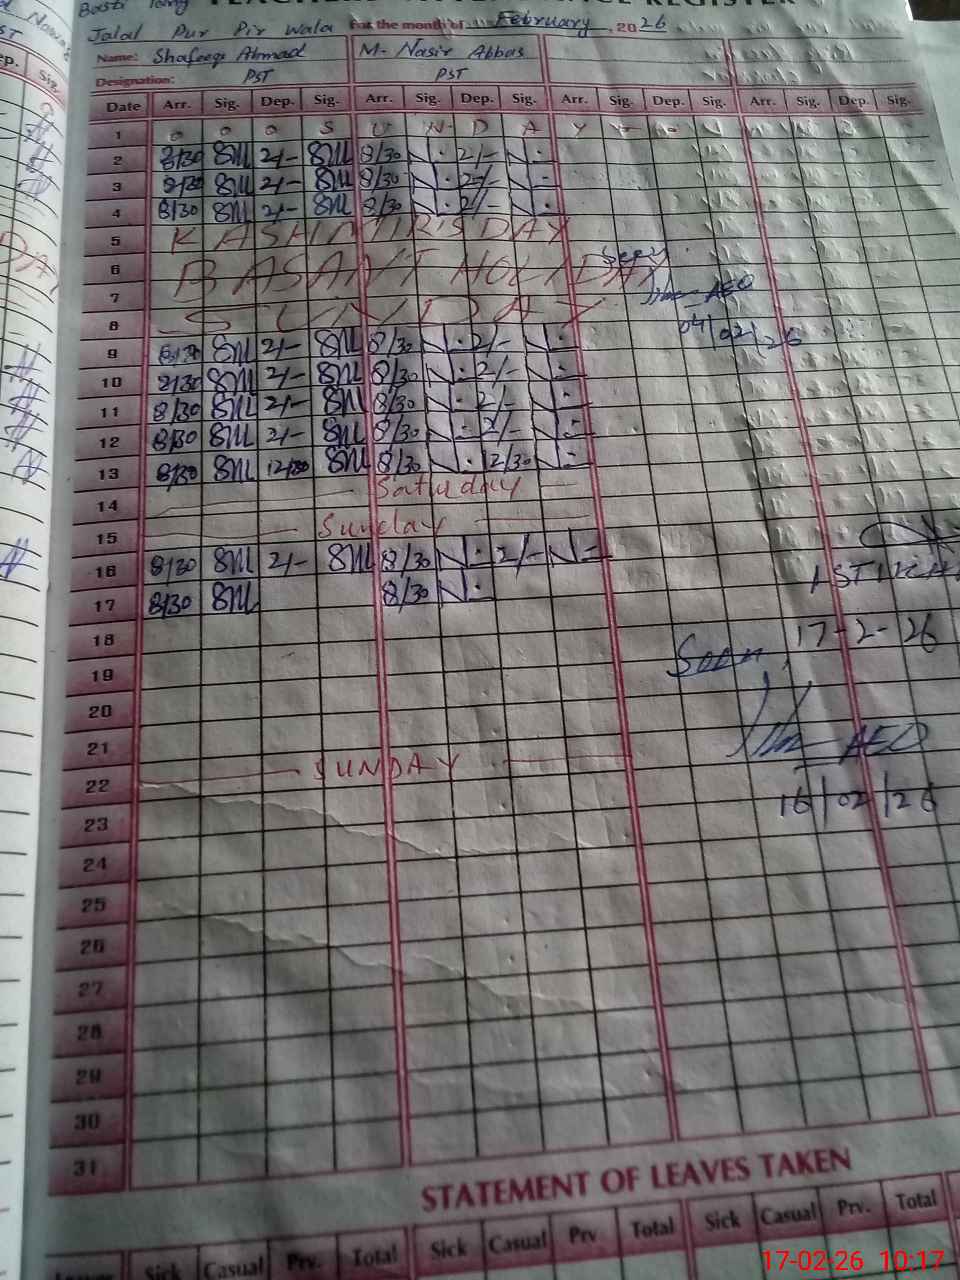 Basti
TEACHERS ATTENDANCE REGISTER
Jalal Pur Pir Wala For the month of February, 2026
Name: Shafeeq Ahmad M. Nasir Abbas
Designation: PST PST
Date Arr. Sig. Dep. Sig. Arr. Sig. Dep. Sig. Arr. Sig. Dep. Sig. Arr. Sig. Dep. Sig.
1 S U N D A Y
2 8/30 2/- 8/30 N. 2/- N.
3 8/30 2/- 8/30 N. 2/- N.
4 8/30 2/- 8/30 N. 2/- N.
5 KASHMIR'S DAY
6 BASANT HOLIDAY
7
AEO
8 SUNDAY
04/02/26
9 2/- 8/30 N. 2/- N.
10 8/30 2/- 8/30 N. 2/- N.
11 8/30 2/- 8/30 N. 2/- N.
12 8/30 2/- 8/30 N. 2/- N.
13 8/30 12/30 8/30 N. 12/30 N.
14 Saturday
15 Sunday
16 8/30 2/- 8/30 N. 2/- N.
17 8/30 8/30 N.
18
17-2-26
19
Seen
20
21
AEO
22 SUNDAY
16/02/26
23
24
25
26
27
28
29
30
31
STATEMENT OF LEAVES TAKEN
Sick Casual Prv. Total Sick Casual Prv. Total Sick Casual Prv. Total
17-02-26 10:17